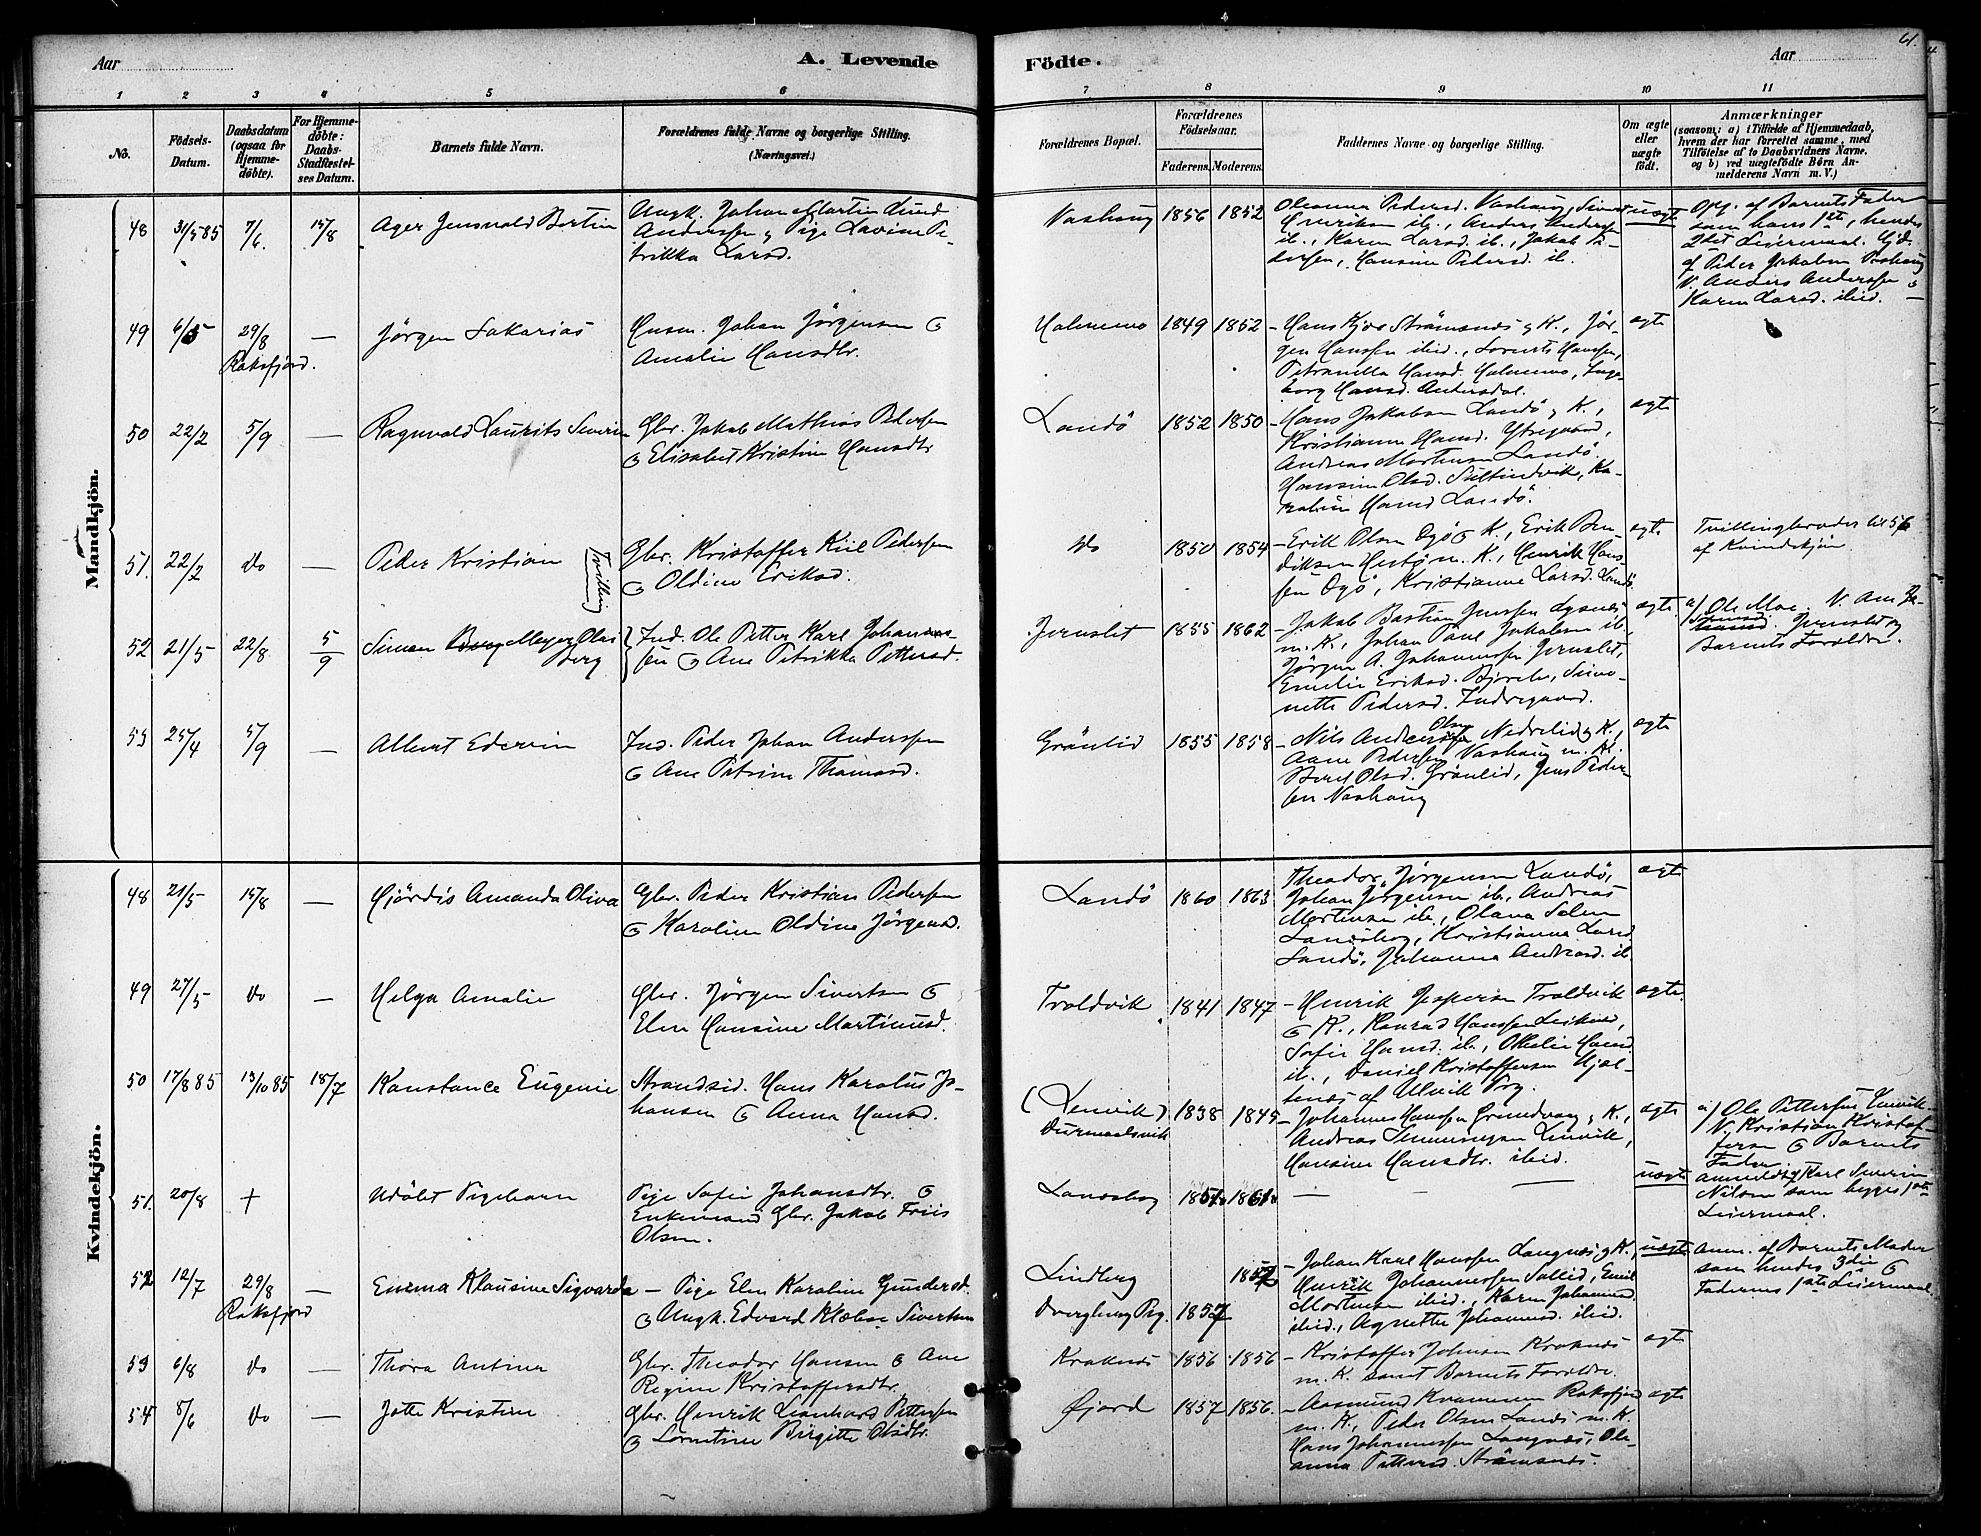 Aar
A. Levende
Födte.
Aar
61.
1 2 3 4 5 6 7 8 9 10 11
No.
Födsels-
Datum.
Daabsdatum
(ogsaa for
Hjemme-
döbte).
For Hjemme-
döbte:
Daabs-
Stadfæstel-
ses Datum.
Barnets fulde Navn.
Forældrenes fulde Navne og borgerlige Stilling.
(Næringsvei.)
Forældrenes Bopæl.
Forældrenes
Födselsaar.
Faderens. Moderens.
Faddernes Navne og borgerlige Stilling.
Om ægte
eller
uægte
født.
Anmærkninger
(saasom: a) i Tilfælde af Hjemmedaab,
hvem der har forrettet samme, med
Tilföielse af to Daabsvidners Navne,
og b) ved uægtefödte Börn An-
melderens Navn m. V.)
Mandkjön.
48 31/5 85 7/6 15/8 Ager Jenvald Bertin
Ungk. Johan Martin Lund
Anderssen og Pige Lavine Pe-
trikka Larsd.
Vashaug 1856 1852
Oleanna Pedersd. Vashaug, Sivert
Henriksen ib., Anders Anderssen
ib., Karen Larsd. ib., Jakob Pe-
dersen, Hansine Pedersd. ib.
uægte
Opg. af Barnets Fader
som hans 1ste, hendes
2det Leiermaal. Hjd.
af Peder Jakobsen Vashaug
V. Anders Anderssen &
Karen Larsd. ibid. —
49 6/5 29/8 — Jörgen Sakarias
Raksfjord.
Husm. Johan Jörgensen &
Amalie Hansdtr.
Malmemo 1849 1852
Hans Kjos Strömsnes & K., Jör-
gen Hanssen ibid., Lornts Hanssen,
Petranilla Hansd. Malmemo, Inge-
borg Hansd. Andersdal.
ægte
50 22/2 5/9 — Ragnvald Laurits Severin
Gbr. Jakob Mathias Pedersen
& Elisabet Kristine Hansdtr
Landö 1852 1850
Hans Jakobsen Landö & K.,
Kristianne Hansd. Ytregaard,
Andreas Mortensen Landö.
Hansine Olsd. Sultindvik, Ka-
roline Hansd Landö.
ægte
51. 22/2 do — Peder Kristian
Tvilling
Gbr. Kristoffer Kiil Pedersen
& Oldine Eriksd.
do 1850 1854
Erik Olsen Ogö & K., Erik Ben-
diksen Hestö m. K., Henrik Hans-
sen Ogö, Kristianne Larsd. Landö
ægte
Tvillingbroder til 56
af Kvindekjön.
52 21/5 22/8 5/9 Simon Berg Meyer Olai
Berg
Ind. Ole Petter Karl Johannes-
sen & Ane Petrikka Pettersd.
Jernslet 1855 1862
Jakob Bastian Jenssen Lysnes
m. K., Johan Paul Jakobsen ib.
Jörgen A. Johannessen Jernslet,
Emelie Eriksd. Bjorelv, Simo-
nette Pedersd. Indregaard.
ægte
a) Ole Moe. V. Ane
Jernslet og
Barnets Forældre.
53 25/4 5/9 — Albert Edervin
Ind. Peder Johan Anderssen
& Ane Petrine Thomasd.
Grönlid 1855 1858
Nils Andreas Olsen Nedrelid & K.,
Aane Pedersen Vashaug m. K.
Beret Olsd. Grönlid, Jens Peder-
sen Vashaug
ægte
Kvindekjön.
48 21/5 15/8 — Hjördis Amanda Oliva
Gbr. Peder Kristian Pedersen
& Karoline Oldine Jörgensd.
Landö 1860 1863
Theodor Jörgensen Landö,
Johan Jörgensen ib., Andreas
Mortensen ib., Olava Salen
Landsborg, Kristianna Larsd
Landö, Johanna Andreasd. ib
ægte
49 27/5 do — Helga Amalie
Gbr. Jörgen Sivertsen &
Elen Hansine Martinusd.
Troldvik 1841 1847
Henrik Jespersen Troldvik
& K., Konrad Hanssen Leiknes,
Sofie Hansd. ib., Othelie Hansd.
ib., Daniel Kristoffersen Hjel-
tenes af Ulvik Prg.
ægte.
50 17/8 85 13/10 85 18/7 Konstance Eugenie
Strandsid. Hans Karolus Jo-
hansen & Anna Hansd.
(Lenvik)
Durmaalsvik
1838 1845
Johannes Hanssen Grundvaag & K.,
Andreas Henningsen Lenvik,
Hansine Hansdtr. ibid.
ægte
a) Ole Pettersen Lenvik.
V. Kristian Kristof-
fersen & Barnets
Fader
51. 20/8 + Udöbt Pigebarn
Pige Sofie Johansdtr. &
Enkemand Gbr. Jakob Friis
Olsen.
Landsborg
— — —
uægte
anmeldt af Karl Severin
Nilsen som begges 1ste
Leiermaal.
52 12/7 29/8 — Emma Klausine Sigvarda
Raksfjord
Pige Elen Karoline Gundersd.
& Ungk. Edvard Klæboe Sivertsen
Lindberg 1852
Dverberg Prg. 1857
Johan Karl Hanssen Langnes & K.,
Henrik Johannessen Sollid, Emil
Mortensen ibid., Karen Johannesd
ibid., Agnette Johannesd. ibid.
uægte
Anm. af Barnets Moder
som hendes 3die &
Faderens 1ste Leiermaal.
53 6/8 do — Thora Antina
Gbr. Theodor Hansen & Ane
Regine Kristoffersdtr.
Kraknes 1856 1856
Kristoffer Johnsen Kraknes
m. K. samt Barnets Forældre.
ægte
54 8/6 do — Jette Kristine
Gbr. Henrik Leonhard Pettersen
& Lorentine Birgitte Olsdtr.
Øjord 1857 1856.
Aasmund Kvammen Raksfjord
m. K., Peder Olsen Landö m. K.
Hans Johannessen Langnes, Ole-
anna Pettersd. Strömsnes.
ægte